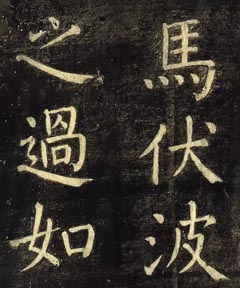 馬伏波
之過如